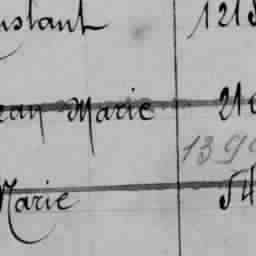 nstant 1215
ean Marie 216
1390
Marie 54